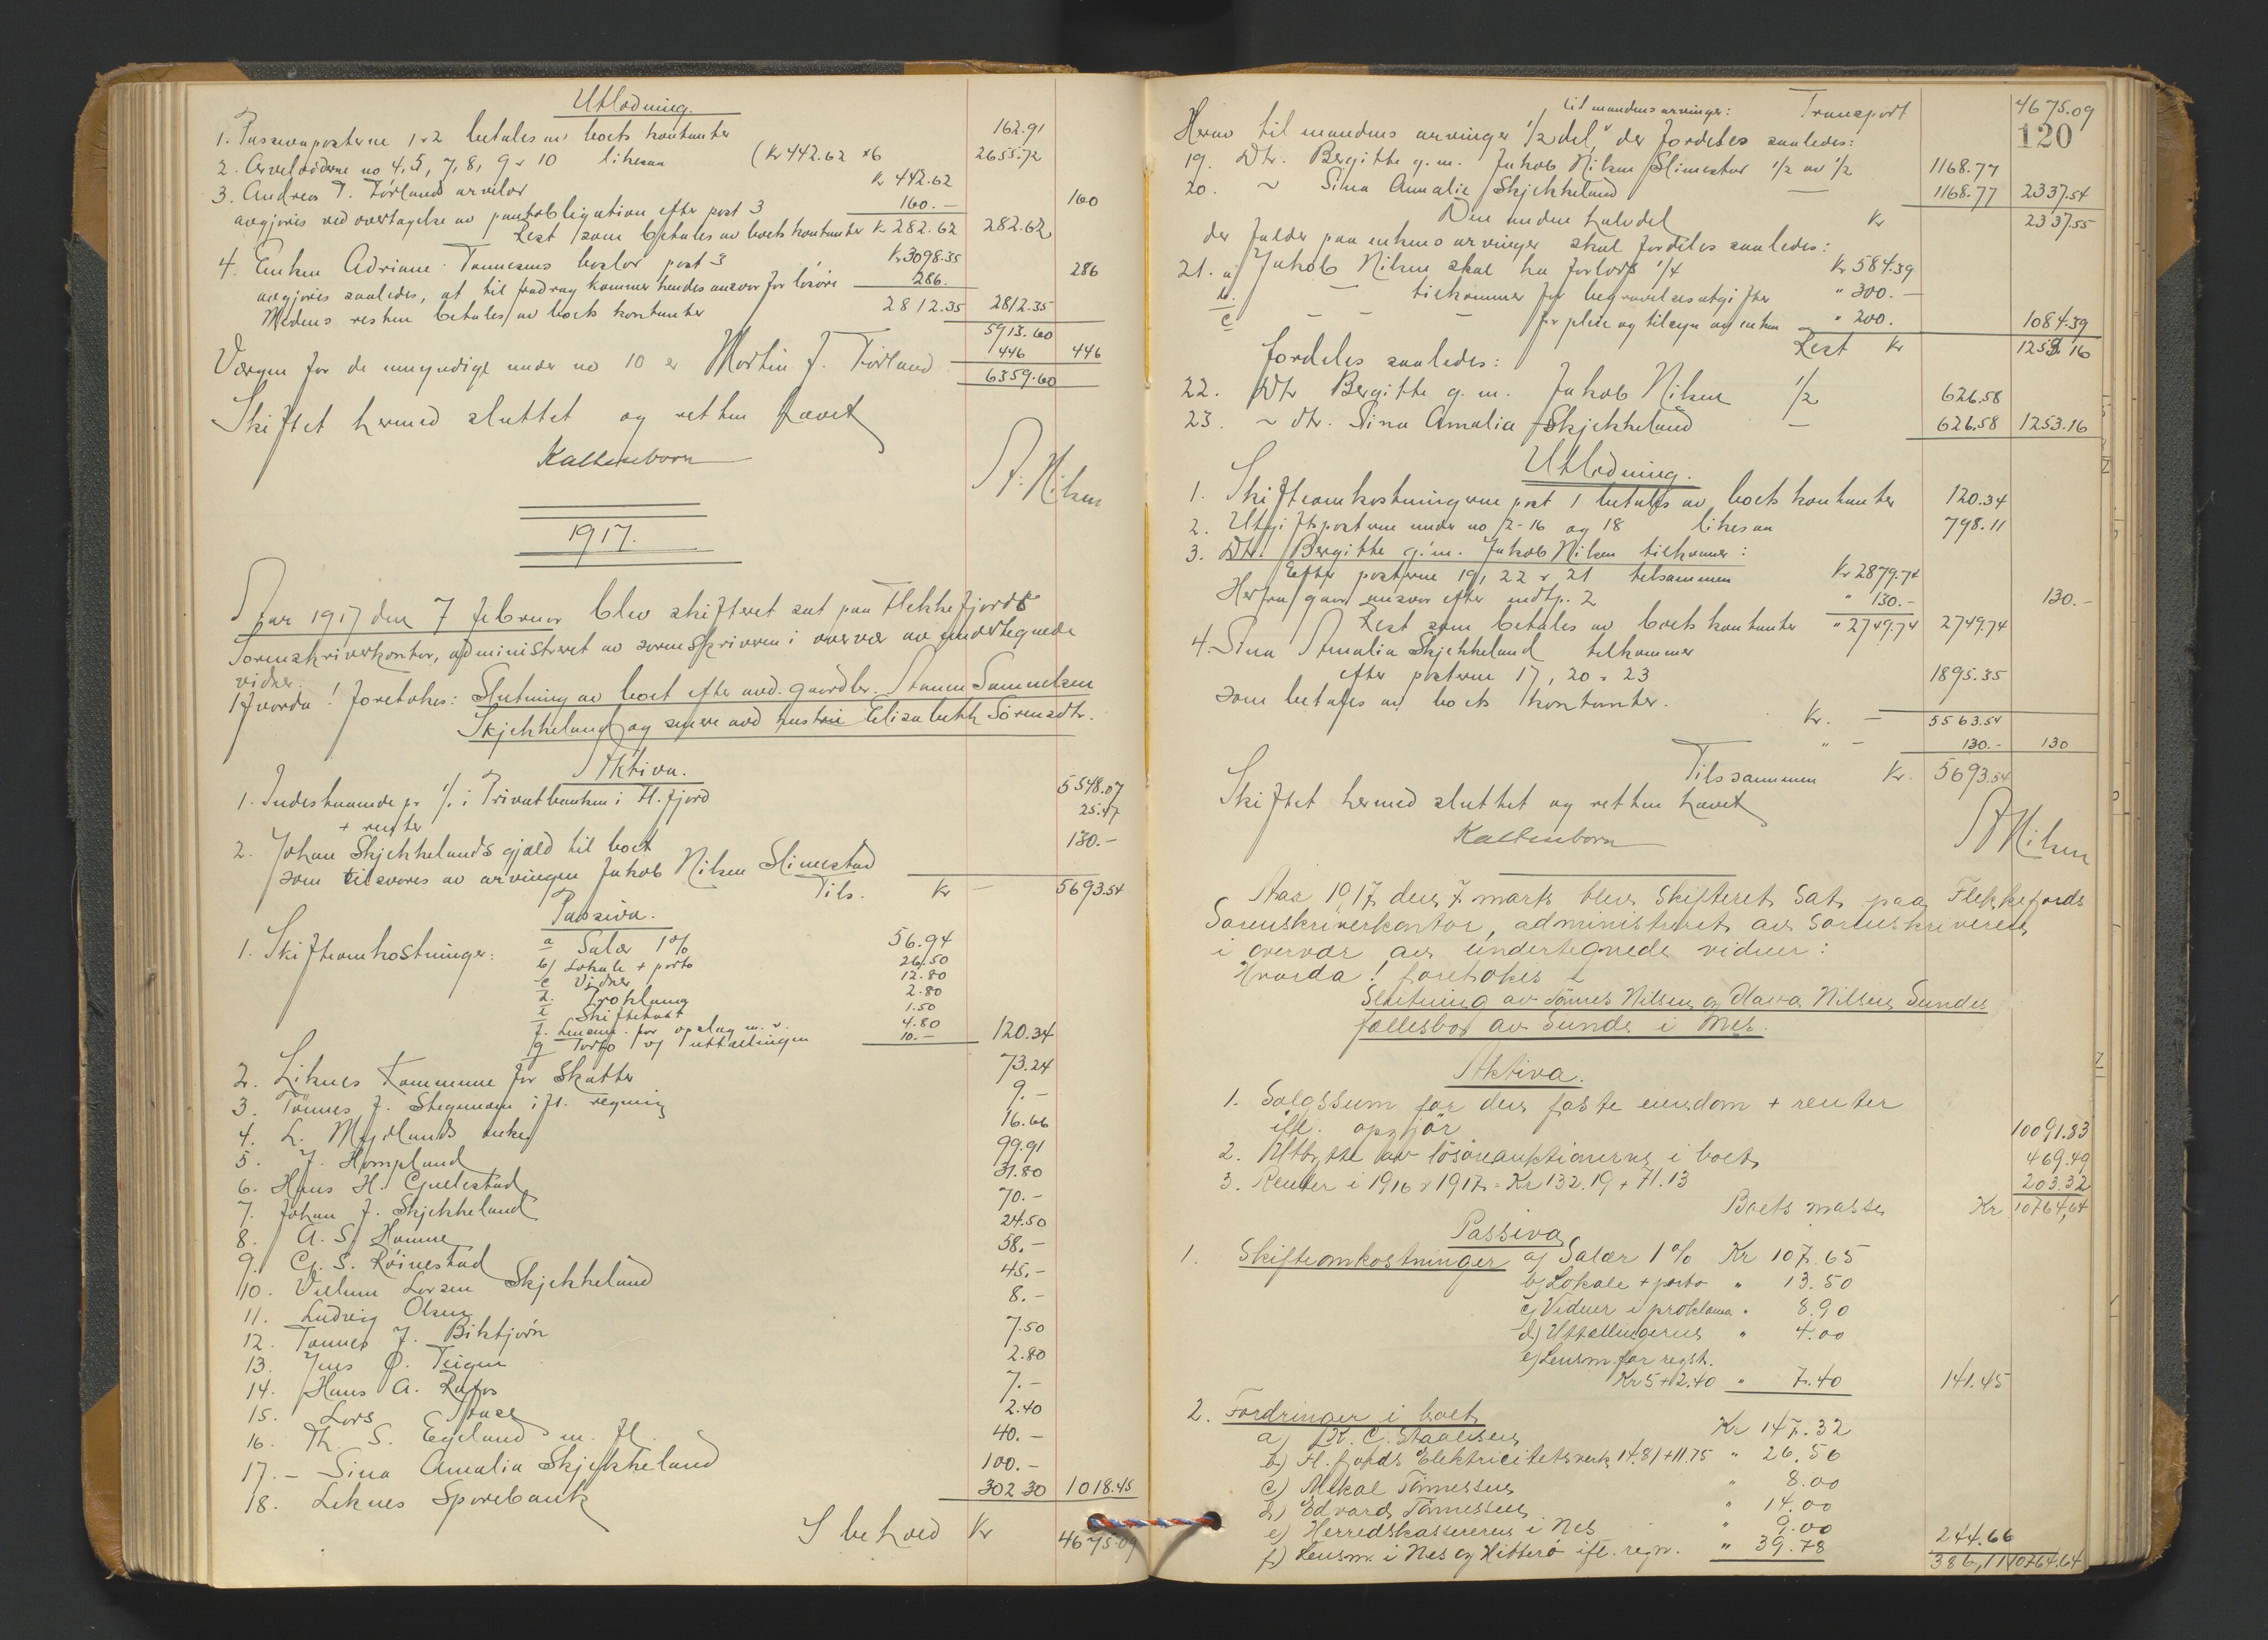 Utlodning.
1. Passivaposterne 1-2 betales av boets kontanter 162.91
2. Arvelodderne no 4, 5, 7, 8, 9 & 10 likesaa (Kr 442.62 × 6 2655.72
3. Andreas T. Förlands arvelod Kr 442.62
avgjöres ved overtagelse av pantobligation efter post 3 160.— 160
Rest som betales av boets kontanter Kr 282.62 282.62
4. Enken Adriane Tønnesens boslod post 3 Kr 3098.35
avgjöres saaledes, at til fradrag kommer hendes ansvar for lösöre 286. 286
Medens resten betales av boets kontanter 2812.35 2812.35
5913.60
Værgen for de umyndige under no 10 er Martin J. Förland 446 446
6359.60
Skiftet hermed sluttet og retten hævet
Kaltenborn
A. Nilsen
1917.
Aar 1917 den 7 februar blev skifteret sat paa Flekkefjords
Sorenskriverkontor, administreret av sorenskriveren i overvær av undertegnede
vidner.
Hvorda! foretokes: Slutning av boet efter avd. gaardbr. Samuelsen
Skjekkeland og senere avd hustru Elisabeth Sörensdtr.
Aktiva.
1. Indestaaende pr % i Privatbanken i Fl.fjord 5548.07
+ renter 25.47
2. Johan Skjekkelands gjæld til boet 130.—
som tilsvares av arvingen Jakob Nilsen Slimestad
Tils. Kr — 5693.54
Passiva.
1. Skifteomkostninger: a Salær 1% 56.94
b) Lokale + porto 26.50
c Vidner 12.80
d. Proklama 2.80
e Skifteattest 1.50
f. Lensm. for opslag m. v. 4.80
g Porto v/ uttællingen 10.— 120.34
2. Liknes kommune for Skatter 73.24
3. Tönnes J. Stegemoen ifl. regning 9.—
4. L. Mydlands enke 16.66
5. J. Hompland 99.91
6. Hans H. Gullestad 31.80
7. Johan J. Skjekkeland 70.—
8. A. S. Homme 24.50
9. G. S. Röinestad 58.—
10. Vilhem Larsen Skjekkeland 45.—
11. Ludvig Olsen 8.—
12. Tønnes J. Birktjörn 7.50
13. Jens O. Teigen 2.80
14. Hans A. Rafos 7.—
15. Lars 2.40
16. Th. S. Egeland m. fl. 40.—
17. — Sina Amalia Skjekkeland 100.—
18. Liknes Sparebank 302.30 1018.45
I behold Kr 4675.09
til mandens arvinger: Transport 4675.09
120
Herav til mandens arvinger 1/2 del, der fordeles saaledes:
19. Dtr. Bergitte g. m. Jakob Nilsen Slimestad 1/2 av 1/2 1168.77
20. ~ Sina Amalie Skjekkeland — 1168.77 2337.54
Den anden halvdel Kr 2337.55
der falder paa enkens arvinger skal fordeles saaledes:
21. a) Jakob Nilsen skal ha forlods 1/4 Kr 584.39
b. — tilkommer for begravelsesutgifter " 300.—
c — — — for pleie og tilsyn av enken " 200. 1084.39
Rest Kr 1253.16
fordeles saaledes:
22. Dtr Bergitte g. m. Jakob Nilsen 1/2 626.58
23. ~ dtr. Sina Amalia Skjekkeland — 626.58 1253.16
Utlodning.
1. Skifteomkostningerne post 1 betales av boets kontanter 120.34
2. Utgiftsposterne under no 2-16 og 18 likesaa 798.11
3. Dtr. Bergitte g. m. Jakob Nilsen tilkommer:
Efter posterne 19, 22 & 21 tilsammen Kr 2879.74
Herfra gaar ansvar efter indtp. 2 " 130.— 130.—
Rest som betales av boets kontanter " 2749.74 2749.74
4. Sina Amalia Skjekkeland tilkommer
efter posterne 17, 20 & 23 1895.35
som betales av boets kontanter.
Kr. — 5563.54
" — 130.— 130
Tilssammen Kr. 5693.54
Skiftet hermed sluttet og retten hævet
Kaltenborn
A Nilsen
Aar 1917 den 7 marts blev Skifteret sat paa Flekkefjords
Sorenskriverkontor, administreret av Sorenskriveren
i overvær av undertegnede vidner:
Hvorda! foretokes
Slutning av Tönnes Nilsen og Olava Nilsen Sundes
fællesbo av Sunde i Nes.
Aktiva.
1. Salgssum for den faste eiendom + renter
ifl. opgjör 10091.83
2. Utbytte av lösöreauktionerne i boet 469.49
3. Renter i 1916 & 1917 = Kr 132.19 + 71.13 203.32
Boets masse Kr 10764,64
Passiva
1. Skifteomkostninger a) Salær 1% Kr 107.65
b) Lokale + porto " 13.50
c) Vidner i proklama " 8.90
d) Uttællingerne " 4.00
e) Lensm. for regstr.
Kr 5 + 2.40 " 7.40 141.45
2. Fordringer i boet
a) C. Staalesen Kr 147.32
b) Fl.fjords Elektricitetsverk 14.81 + 11.75 " 26.56
c) Mikal Tönnessen " 8.00
d) Edvard Tönnessen " 14.00
e) Herredskassereren i Nes " 9.00
f) Lensm. i Nes og Hitterö ifl. regn. " 39.78 244.66
386,11 10764.64